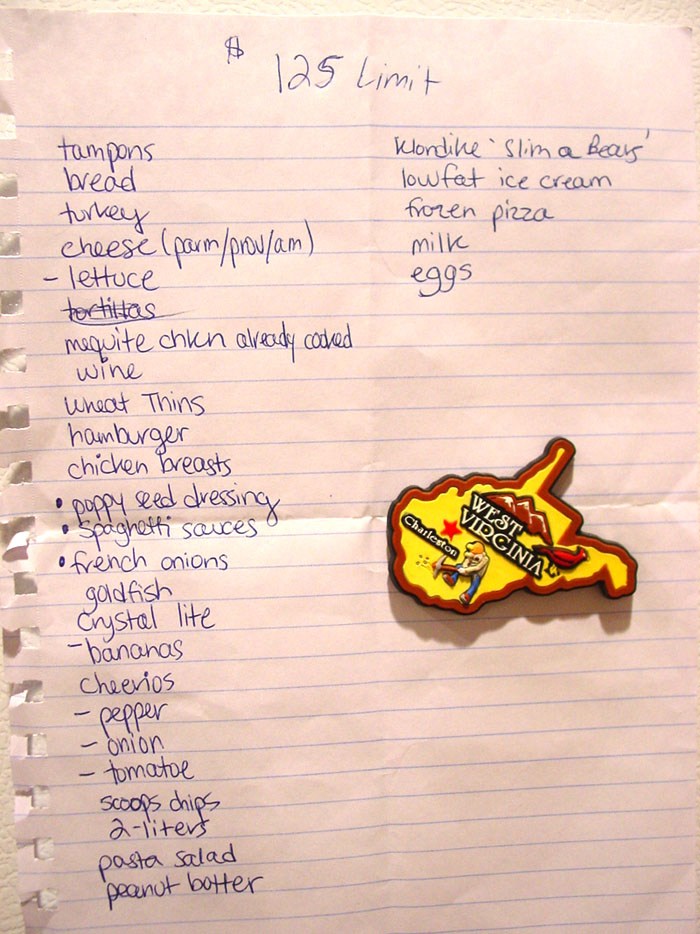 $ 125 Limit
tampons
bread
turkey
cheese (parm/prov/am)
- lettuce
tortillas
mequite chkn already cooked
wine
wheat Thins
hamburger
chicken breasts
• poppy seed dressing
• spaghetti sauces
• french onions
goldfish
crystal lite
- bananas
cheerios
- pepper
- onion
- tomatoe
scoops chips
2-liters
pasta salad
peanut botter
Klondike 'Slim a Bears'
lowfat ice cream
frozen pizza
milk
eggs
WEST
VIRGINIA
Charleston